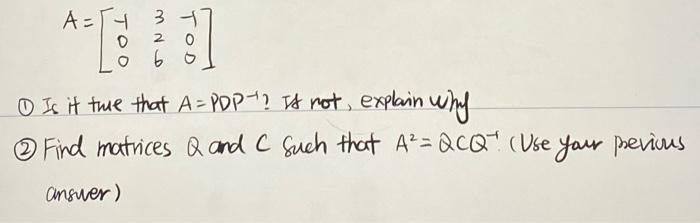 A = [-1 3 -1
0 2 0
0 6 0]
① Is it true that A = PDP⁻¹? If not, explain why
② Find matrices Q and C Such that A² = QCQ⁻¹. (Use your previous
answer)